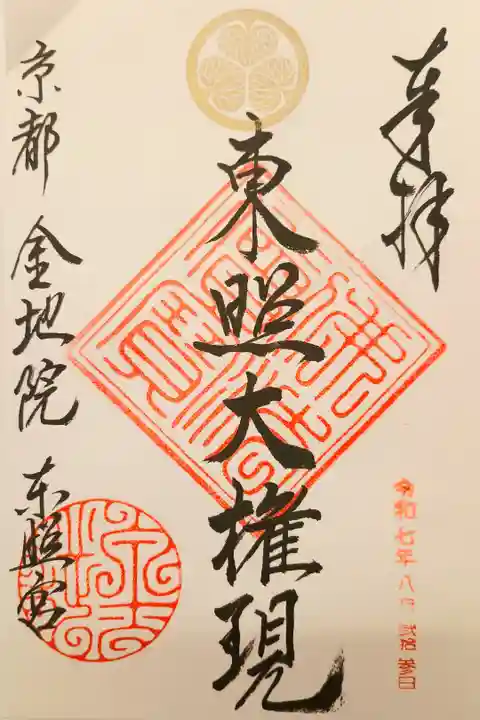 奉拝
令和七年八月弐拾参日
東照大権現
京都 金地院 東照宮